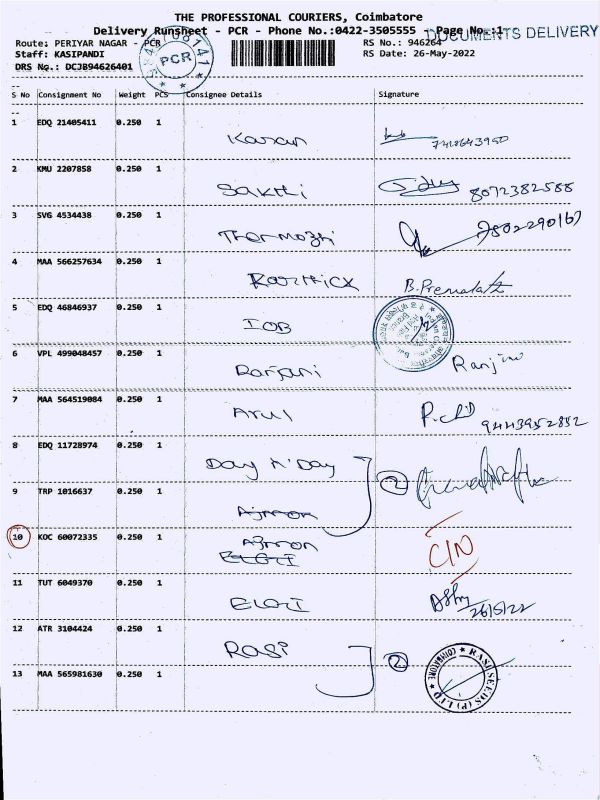 THE PROFESSIONAL COURIERS, Coimbatore
Delivery Runsheet - PCR - Phone No.:0422-3505555 - Page No.:1
DOCUMENTS DELIVERY
Route: PERIYAR NAGAR - PCR RS No.: 946264
Staff: KASIPANDI RS Date: 26-May-2022
DRS No.: DCJB94626401
PCR
S No Consignment No Weight PCS Consignee Details Signature
1 EDQ 21405411 0.250 1 Karan
2 KMU 2207858 0.250 1 Sakthi 8072382588
3 SVG 4534438 0.250 1 Thermozhi
4 MAA 566257634 0.250 1 Karthick B.Premalatha
5 EDQ 46846937 0.250 1 IOB
6 VPL 499048457 0.250 1 Ranjani Ranjini
7 MAA 564519084 0.250 1 Arul 9443952852
8 EDQ 11728974 0.250 1 Day N' Day 2
9 TRP 1016637 0.250 1 Ajmon
10 KOC 60072335 0.250 1 Ajmon C/N
ELGI
11 TUT 6049370 0.250 1 ELGI 26/5/22
12 ATR 3104424 0.250 1 RASI 2
13 MAA 565981630 0.250 1
RASI SEEDS (P) LTD
COIMBATORE